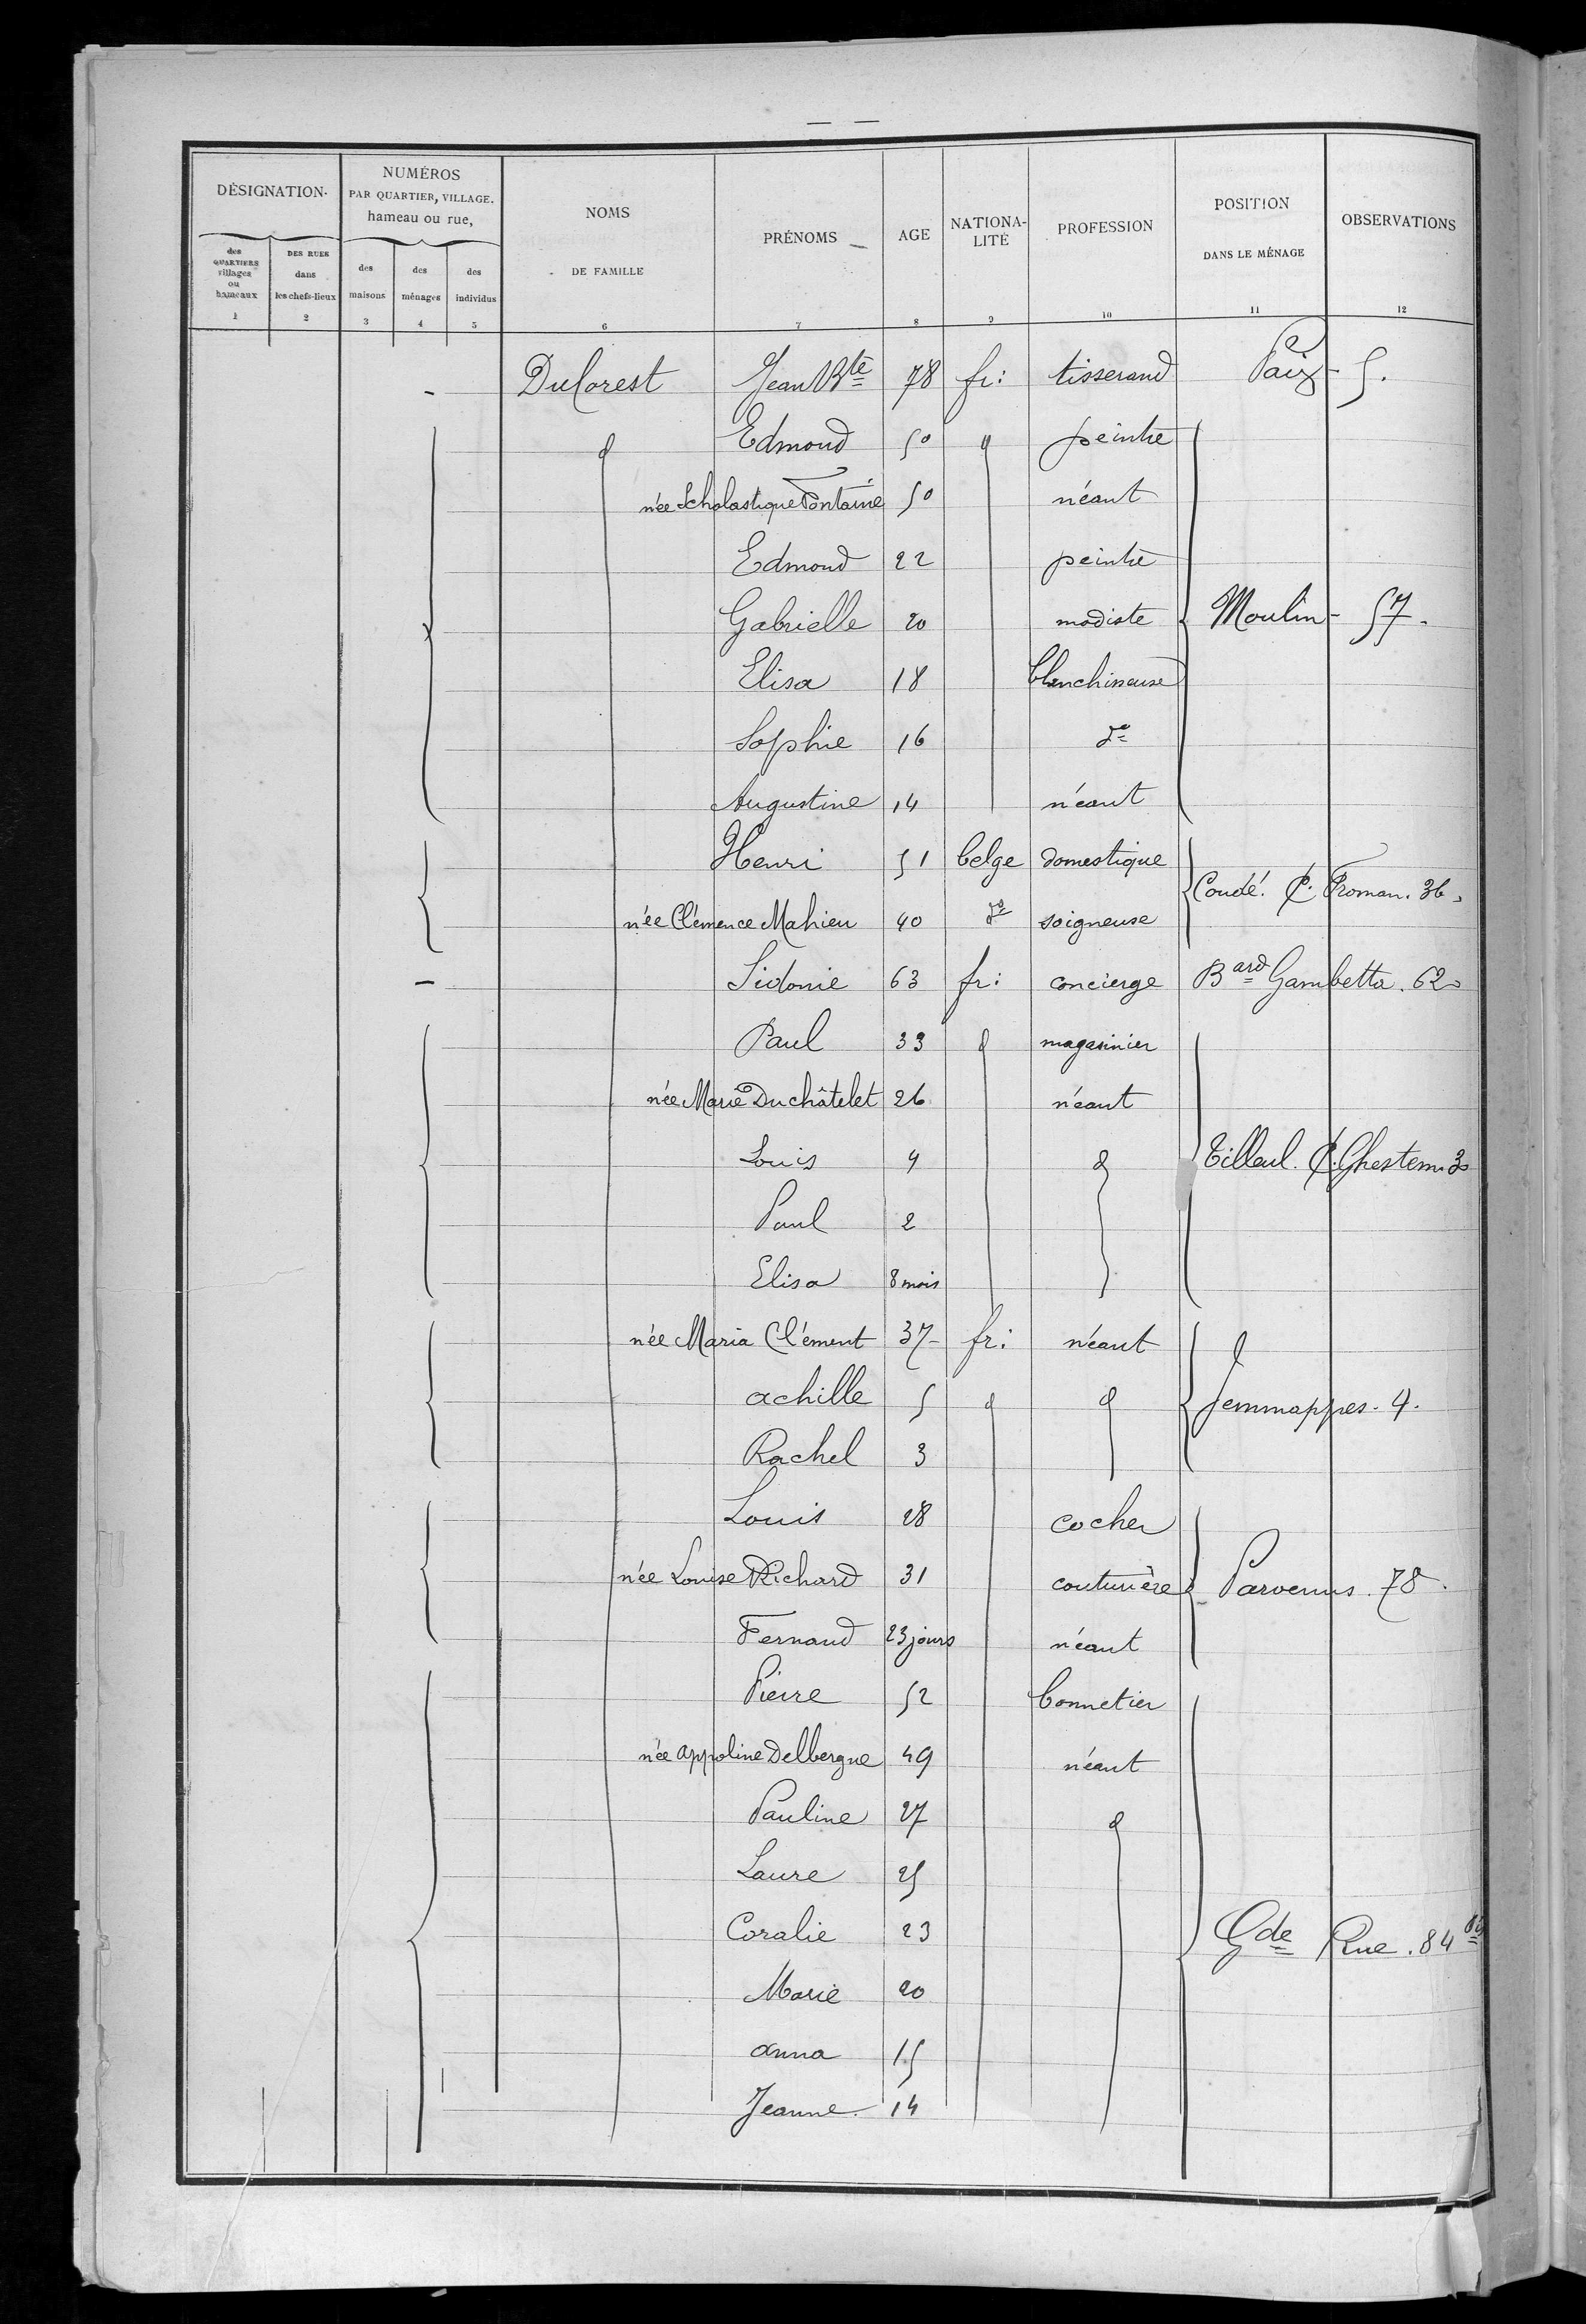 DÉSIGNATION.
NUMÉROS
PAR QUARTIER, VILLAGE.
hameau ou rue,
NOMS
DE FAMILLE
PRÉNOMS
AGE
NATIONA-
LITÉ
PROFESSION
POSITION
DANS LE MÉNAGE
OBSERVATIONS
des
QUARTIERS
villages
ou
hameaux
DES RUES
dans
les chefs-lieux
des
maisons
des
ménages
des
individus
1 2 3 4 5 6 7 8 9 10 11 12
Duforest Jean Bte 78 fr: tisserand Paix - 5.
d Edmond 50 d peintre
née Scholastique Fontaine 50 néant
Edmond 22 peintre
Gabrielle 20 modiste Moulin - 57.
Elisa 18 blanchisseuse
Sophie 16 do
Augustine 14 néant
Henri 51 belge domestique
Condé. C. Froman. 36.
née Clémence Mahieu 40 do soigneuse
Sidonie 63 fr: concierge Bard Gambetta. 62
Paul 33 d magasinier
née Marie Duchâtelet 26 néant
Louis 4 d Tilleul. C. Ghestem. 3
Paul 2
Elisa 8 mois
née Maria Clément 37 - fr: néant d
achille 5 d d Jemmappes. 4.
Rachel 3
Louis 28 cocher
née Louise Richard 31 couturière Parvenus. 78.
Fernand 23 jours néant
Pierre 52 bonnetier
née Appoline Delbergue 49 néant
Pauline 27 d
Laure 25
Coralie 23 Gde Rue. 84 bis
Marie 20
anna 15
Jeanne. 14